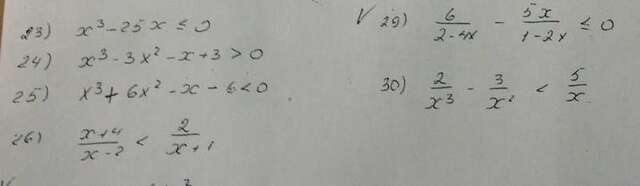 23) x³ - 25x ≤ 0
24) x³ - 3x² - x + 3 > 0
25) x³ + 6x² - x - 6 < 0
26) (x+4)/(x-2) < 2/(x+1)
V 29) 6/(2-4x) - 5x/(1-2x) ≤ 0
30) 2/x³ - 3/x² < 5/x